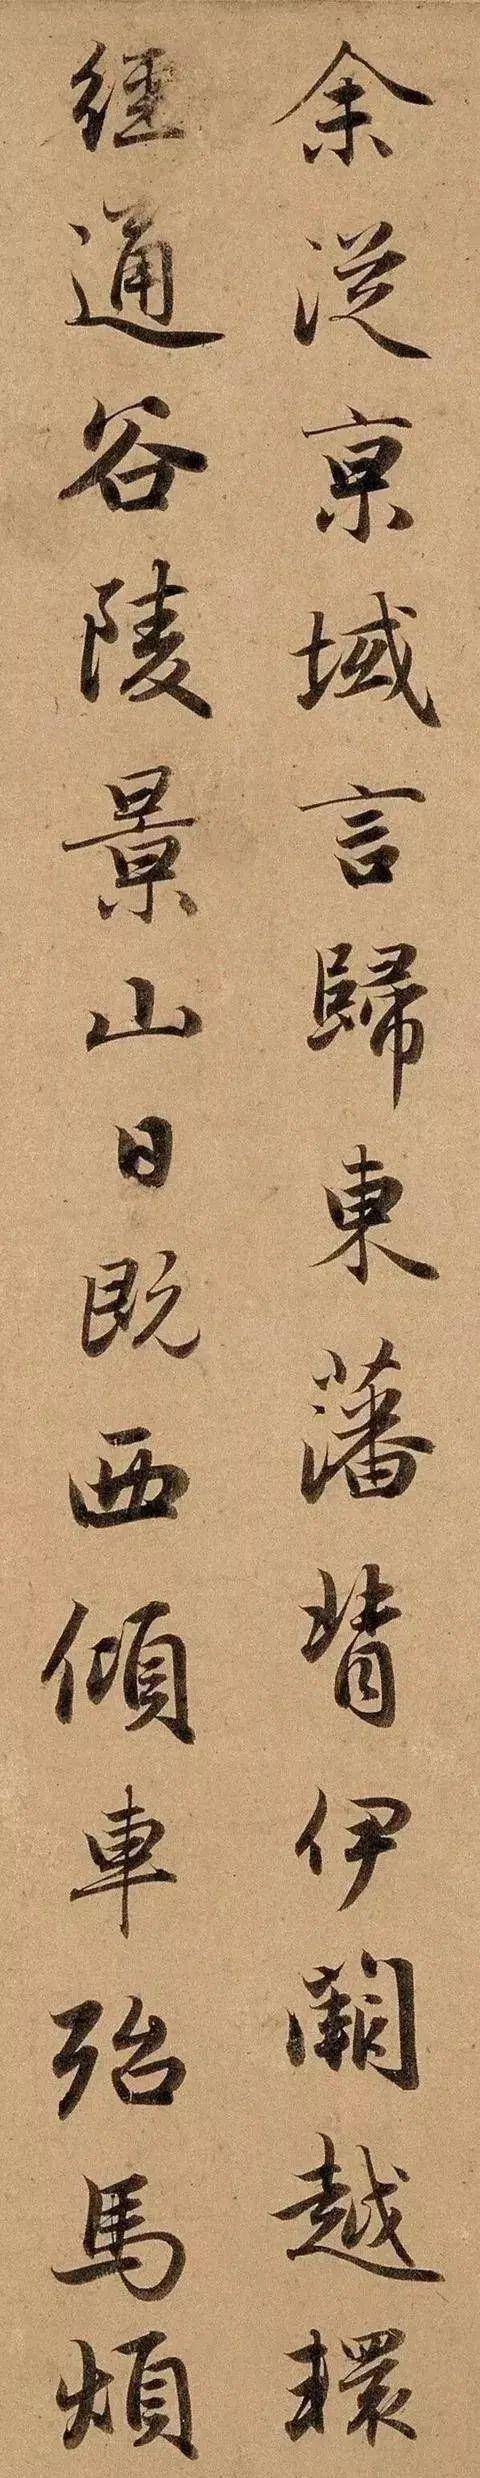 余從京域言歸東藩背伊闕越轘
經通谷陵景山日既西傾車殆馬煩